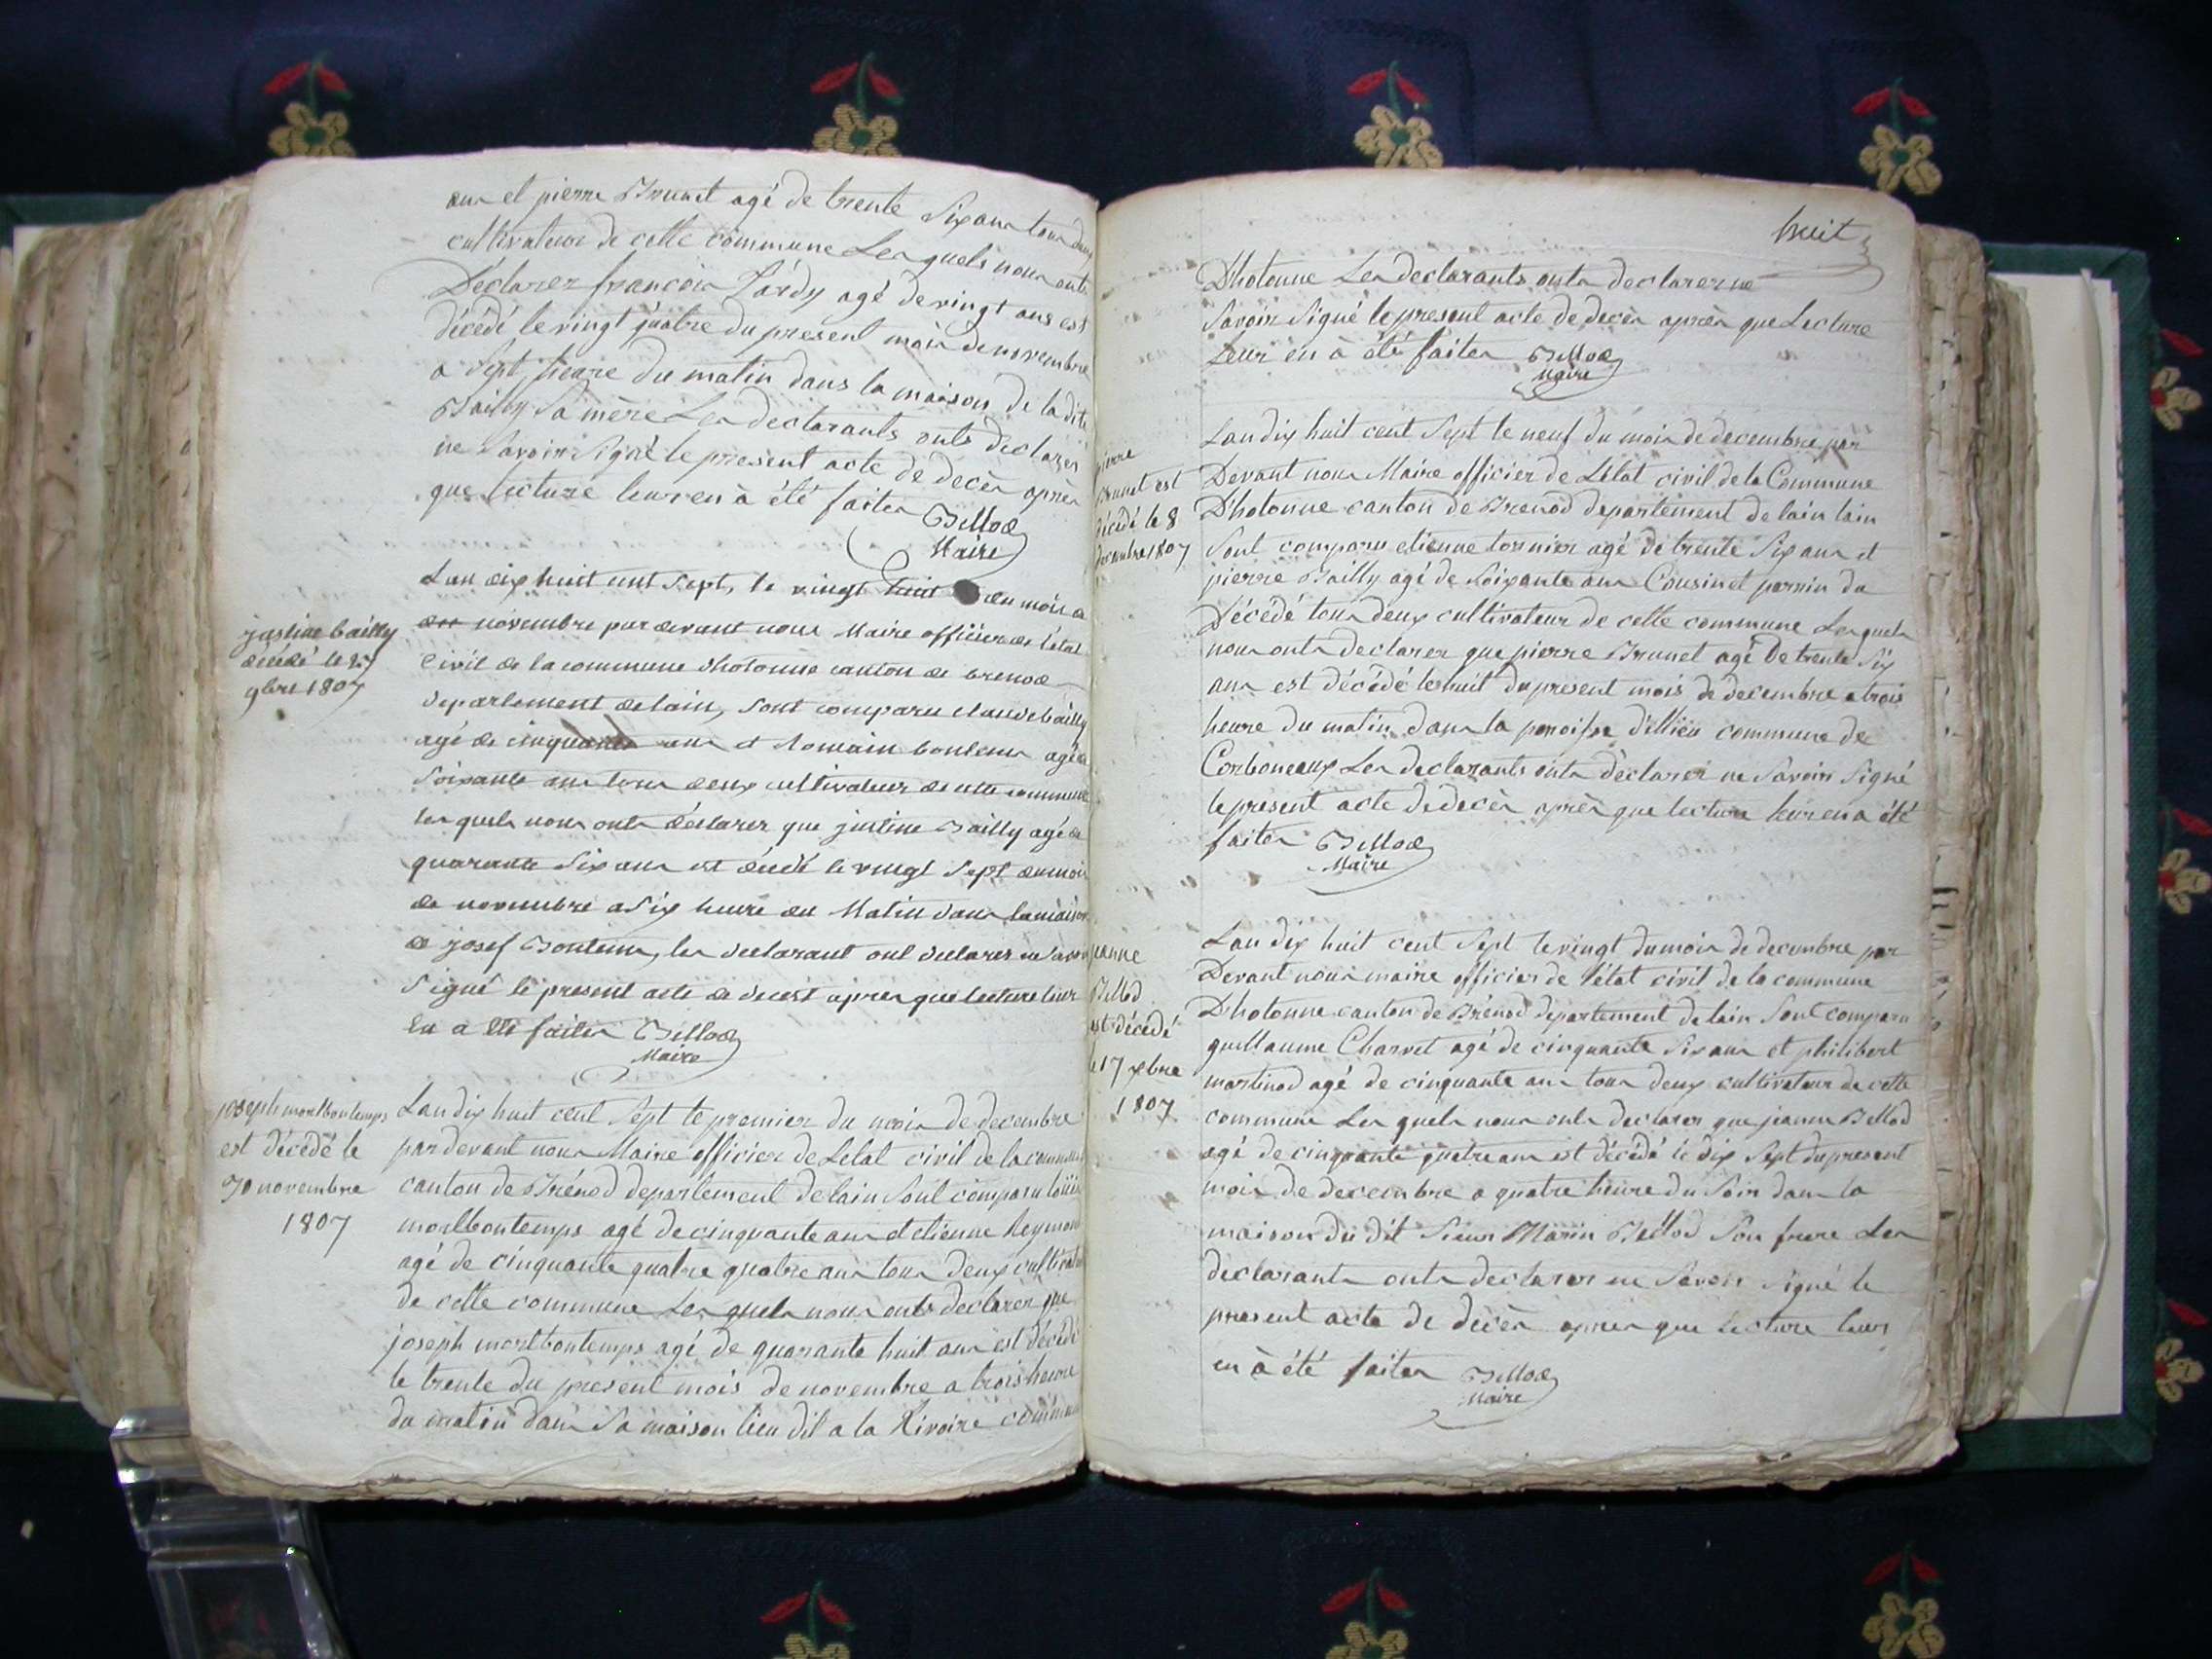 ans et pierre Brunet agé de trente Six ans tous deux
cultivateur de cette commune Les quels nous onts
Déclarez francois Lardy agé de vingt ans est
décédé le vingt quatre du present mois de novembre
a Sept heure du matin dans la maison de la dite
Bailly Sa mère Les declarants onts declarer
ne Savoir Signé le present acte de décès après
que lecture leur en à été faites Bellod
Maire
justine bailly
décédé le 27
9bre 1807
Lan dix huit cent Sept, le vingt huit du mois de
novembre par devant nous Maire officier de l'état
Civil de la commune dhotonne canton de brenod
departement de lain, Sont comparu claude bailly
agé de cinquante ans et Romain bontems agé de
Soixante ans tous deux cultivateur de cette commune
les quels nous onts déclarer que justine Bailly agé de
quarante Six ans est décédé le vingt Sept du mois
de novembre a Six heure du Matin dans la maison
de josef Bontems, les declarant ont declarer ne Savoir
Signé le present acte de decest apres que lecture leur
en a été faites Bellod
Maire
joseph mortbontemps
est décédé le
30 novembre
1807
Lan dix huit cent Sept le premier du mois de decembre
par devant nous Maire officier de Letat civil de la commune
canton de Brénod departement de lain Sont comparu
mortbontemps agé de cinquante ans et etienne Reymond
agé de cinquante quatre quatre ans tous deux cultivateur
de cette commune Les quels nous onts declarer que
joseph mortbontemps agé de quarante huit ans est décédé
le trente du present mois de novembre a trois heure
du matin dans Sa maison lieu dit a la Rivoire commune
huit
D'hotonne Les declarants onts declarer ne
Savoir Signé le present acte de decès après que Lecture
Leur en à été faites Bellod
Maire
pierre
Brunet est
décédé le 8
decembre 1807
Lan dix huit cent Sept le neuf du mois de decembre par
Devant nous Maire officier de Létat civil de la Commune
D'hotonne canton de Brenod departement de lain lain
Sont comparu etienne tornier agé de trente Six ans et
pierre Bailly agé de Soixante ans Cousin et parrin du
Décédé tous deux cultivateur de cette commune Lesquels
nous onts declarer que pierre Brunet agé De trente Six
ans est décédé le huit du present mois de decembre a trois
heure du matin dans la paroisse d'illieu commune de
Corboneaux Les declarants onts déclarer ne Savoir Signé
le present acte de decès après que lecture leur en a été
faites Bellod
Maire
jeanne
Bellod
est décédé
le 17 xbre
1807
Lan dix huit cent Sept le vingt du mois de decembre par
Devant nous maire officier de l'état civil de la commune
D'hotonne canton de Brénod departement de lain Sont comparu
guillaume Charvet agé de cinquante Six ans et philibert
martinod agé de cinquante ans tous deux cultivateur de cette
commune Les quels nous onts declarer que jeanne Bellod
agé de cinquante quatre ans est décédé le dix Sept du present
mois de decembre a quatre heure du Soir dans la
maison du dit Sieur Marin Bellod Son frere Les
declarants onts declarer ne Savoir Signé le
present acte de décès apres que lecture leur
en à été faites Bellod
Maire